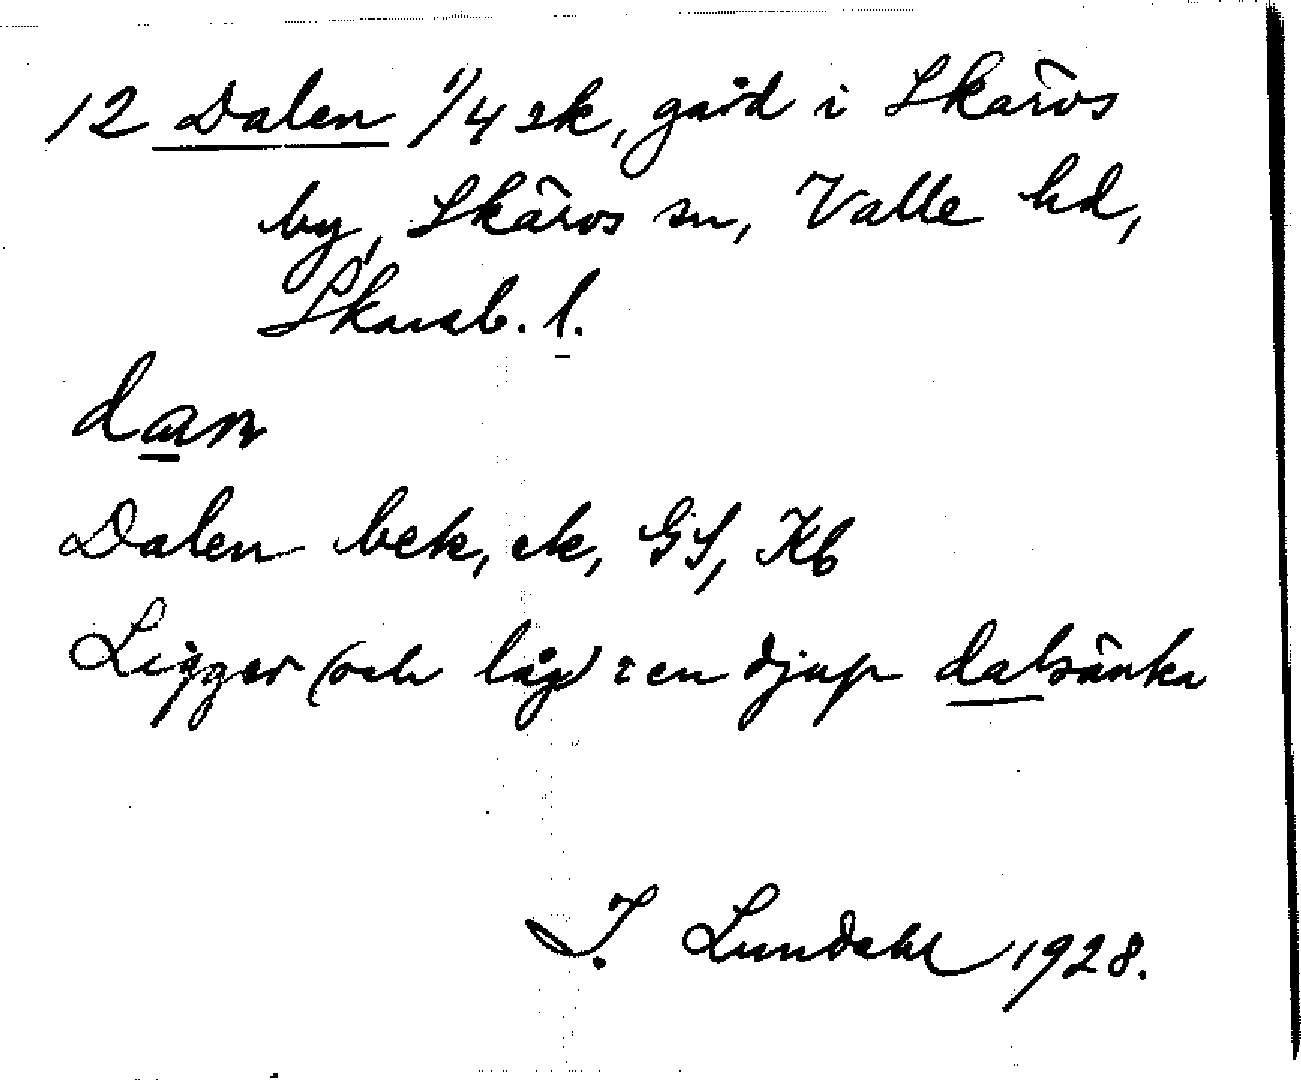 12 Dalen 1/4 sk, gård i Skärvs
by, Skärvs sn, Valle hd,
Skarab. l.
Dalen bek, ek, GS, Kb
Ligger (och låg) i en djup dalsänka
I. Lundahl 1928.